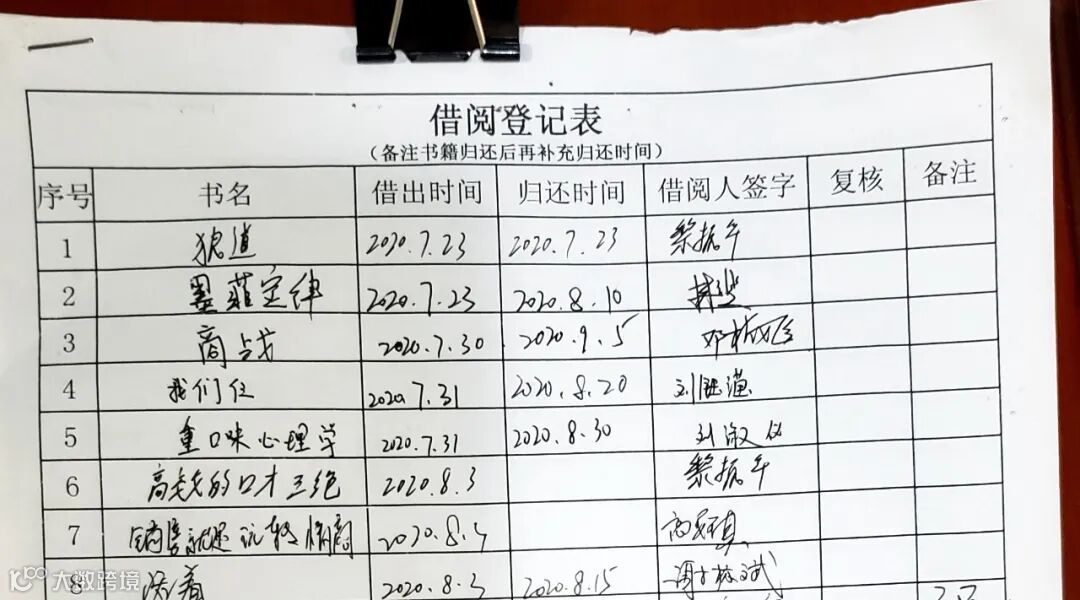 借阅登记表
(备注书籍归还后再补充归还时间)
序号 书名 借出时间 归还时间 借阅人签字 复核 备注
1 狼道 2020.7.23 2020.7.23 黎振午
2 墨菲定律 2020.7.23 2020.8.10
3 商战 2020.7.30 2020.9.5
4 我们仨 2020.7.31 2020.8.20
5 重口味心理学 2020.7.31 2020.8.30 刘淑仪
6 高手的口才三绝 2020.8.3 黎振午
7 销售就是玩转情商 2020.8.3
8 活着 2020.8.3 2020.8.15
大数跨境